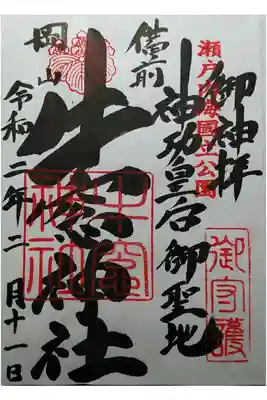 御神拝
御守護
瀬戸内海國立公園
神功皇后御聖地
備前
牛窓神社
牛窓神社
岡山
令和二年二月十一日